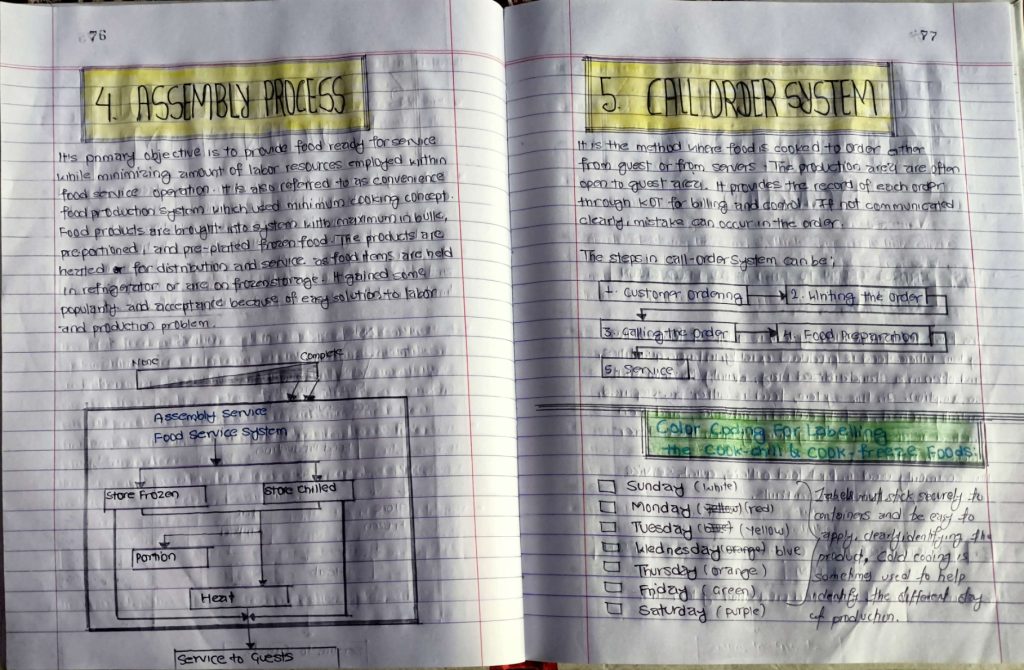 76
4. ASSEMBLY PROCESS
It's primary objective is to provide food ready for service
while minimizing amount of labor resources employed within
food service operation. It is also referred to as convenience
food production system which used minimum cooking concept.
Food products are brought into system with maximum in bulk,
preportioned, and pre-plated frozen food. The products are
heated for distribution and service as food items are held
in refrigerator or are on frozen storage. It gained some
popularity and acceptance because of easy solution to labor
and production problem.
None
Complete
Assembly Service
Food Service System
Store Frozen
Store Chilled
Portion
Heat
Service to Guests
77
5. CALL ORDER SYSTEM
It is the method where food is cooked to order either
from guest or from servers. The production area are often
open to guest area. It provides the record of each order
through KOT for billing and control. If not communicated
clearly, mistake can occur in the order.
The steps in call-order system can be;
1. Customer Ordering
2. Writing the order
3. Calling the Order
4. Food Preparation
5. Service
Color Coding For Labelling
the COOK-chill & COOK-freeze Foods:
Sunday (white)
Monday (yellow) (red)
Tuesday (blue) (yellow)
Wednesday (orange) blue
Thursday (orange)
Friday (green)
Saturday (purple)
Labels must stick securely to
containers and be easy to
apply, clearly identifying the
product, Cold coding is
sometimes used to help
identify the different day
of production.